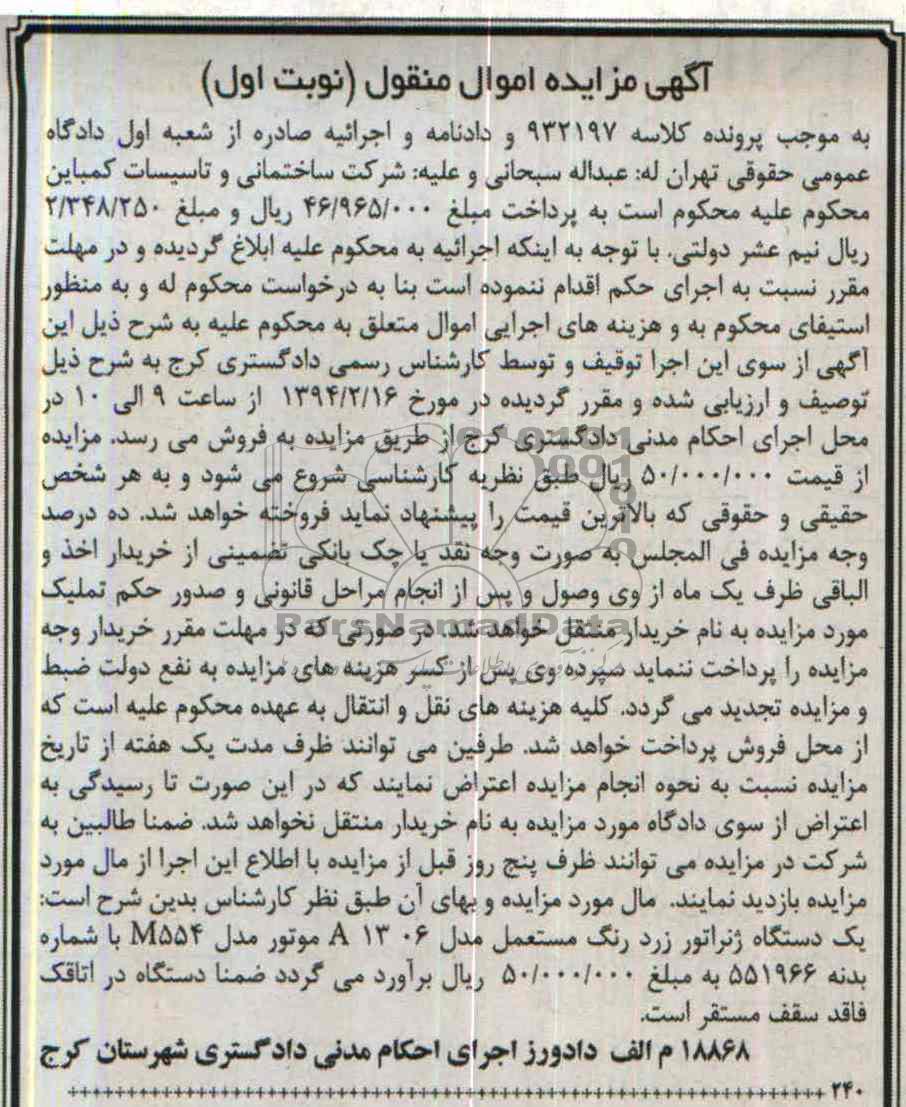 آگهی مزایده اموال منقول (نوبت اول)
به موجب پرونده کلاسه ۹۳۲۱۹۷ و دادنامه و اجرائیه صادره از شعبه اول دادگاه
عمومی حقوقی تهران له: عبداله سبحانی و علیه: شرکت ساختمانی و تاسیسات کمباین
محکوم علیه محکوم است به پرداخت مبلغ ۴۶/۹۶۵/۰۰۰ ریال و مبلغ ۲/۳۴۸/۲۵۰
ریال نیم عشر دولتی. با توجه به اینکه اجرائیه به محکوم علیه ابلاغ گردیده و در مهلت
مقرر نسبت به اجرای حکم اقدام ننموده است بنا به درخواست محکوم له و به منظور
استیفای محکوم به و هزینه های اجرایی اموال متعلق به محکوم علیه به شرح ذیل این
آگهی از سوی این اجرا توقیف و توسط کارشناس رسمی دادگستری کرج به شرح ذیل
توصیف و ارزیابی شده و مقرر گردیده در مورخ ۱۳۹۴/۲/۱۶ از ساعت ۹ الی ۱۰ در
محل اجرای احکام مدنی دادگستری کرج از طریق مزایده به فروش می رسد. مزایده
از قیمت ۵۰/۰۰۰/۰۰۰ ریال طبق نظریه کارشناسی شروع می شود و به هر شخص
حقیقی و حقوقی که بالاترین قیمت را پیشنهاد نماید فروخته خواهد شد. ده درصد
وجه مزایده فی المجلس به صورت وجه نقد یا چک بانکی تضمینی از خریدار اخذ و
الباقی ظرف یک ماه از وی وصول و پس از انجام مراحل قانونی و صدور حکم تملیک
مورد مزایده به نام خریدار منتقل خواهد شد. در صورتی که در مهلت مقرر خریدار وجه
مزایده را پرداخت ننماید سپرده وی پس از کسر هزینه های مزایده به نفع دولت ضبط
و مزایده تجدید می گردد. کلیه هزینه های نقل و انتقال به عهده محکوم علیه است که
از محل فروش پرداخت خواهد شد. طرفین می توانند ظرف مدت یک هفته از تاریخ
مزایده نسبت به نحوه انجام مزایده اعتراض نمایند که در این صورت تا رسیدگی به
اعتراض از سوی دادگاه مورد مزایده به نام خریدار منتقل نخواهد شد. ضمنا طالبین به
شرکت در مزایده می توانند ظرف پنج روز قبل از مزایده با اطلاع این اجرا از مال مورد
مزایده بازدید نمایند. مال مورد مزایده و بهای آن طبق نظر کارشناس بدین شرح است:
یک دستگاه ژنراتور زرد رنگ مستعمل مدل ۰۶ ۱۳ A موتور مدل M۵۵۴ با شماره
بدنه ۵۵۱۹۶۶ به مبلغ ۵۰/۰۰۰/۰۰۰ ریال برآورد می گردد ضمنا دستگاه در اتاقک
فاقد سقف مستقر است.
۱۸۸۶۸ م الف دادورز اجرای احکام مدنی دادگستری شهرستان کرج
۲۴۰
ParsNamadData